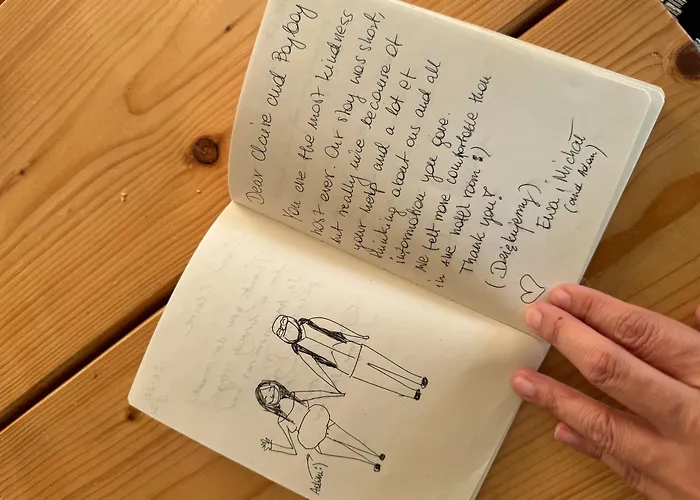 Dear Claire and
You are the most kindness
host ever. Our stay was short,
but really nice because of
your help and a lot of
thinking about ous and all
information you gave.
We felt more comfortable than
in the hotel room :)
Thank you!
(Dziękujemy)
Ewa i Michał
Adam :)